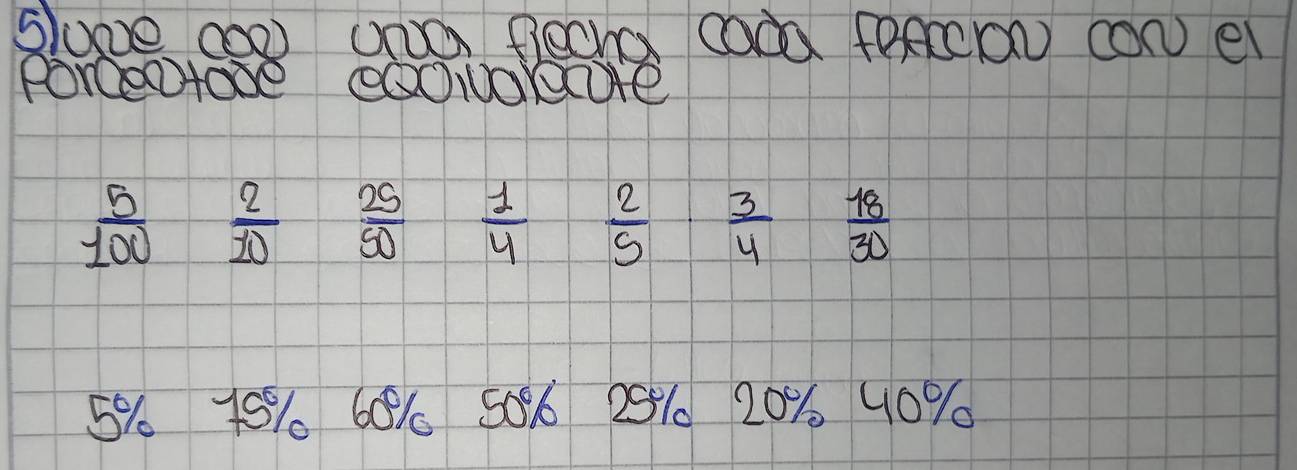 5) une con una flecha cada fraccion con el
porcentage equivalente
5/100 2/10 25/50 1/4 2/5 3/4 18/30
5% 75% 60% 50% 25% 20% 40%